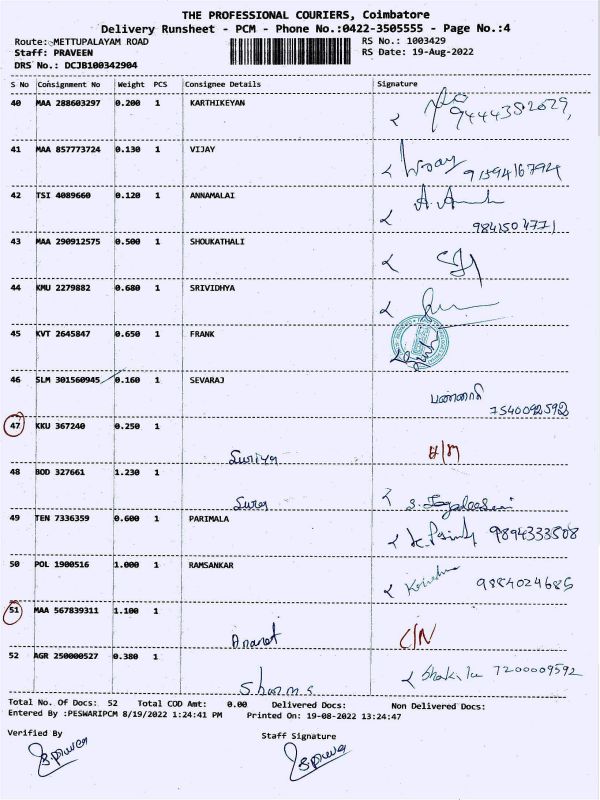 THE PROFESSIONAL COURIERS, Coimbatore
Delivery Runsheet - PCM - Phone No.:0422-3505555 - Page No.:4
Route: METTUPALAYAM ROAD RS No.: 1003429
Staff: PRAVEEN RS Date: 19-Aug-2022
DRS No.: DCJB100342904
S No Consignment No Weight PCS Consignee Details Signature
40 MAA 288603297 0.200 1 KARTHIKEYAN
41 MAA 857773724 0.130 1 VIJAY
42 TSI 4089660 0.120 1 ANNAMALAI
9841504771
43 MAA 290912575 0.500 1 SHOUKATHALI
44 KMU 2279882 0.680 1 SRIVIDHYA
45 KVT 2645847 0.650 1 FRANK
46 SLM 301560945 0.160 1 SEVARAJ
47 KKU 367240 0.250 1
Suriya
48 BOD 327661 1.230 1
49 TEN 7336359 0.600 1 PARIMALA
9894333508
50 POL 1900516 1.000 1 RAMSANKAR
9884024686
51 MAA 567839311 1.100 1
C/N
52 AGR 250000527 0.380 1
7200009592
Total No. Of Docs: 52 Total COD Amt: 0.00 Delivered Docs: Non Delivered Docs:
Entered By :PESWARIPCM 8/19/2022 1:24:41 PM Printed On: 19-08-2022 13:24:47
Verified By Staff Signature